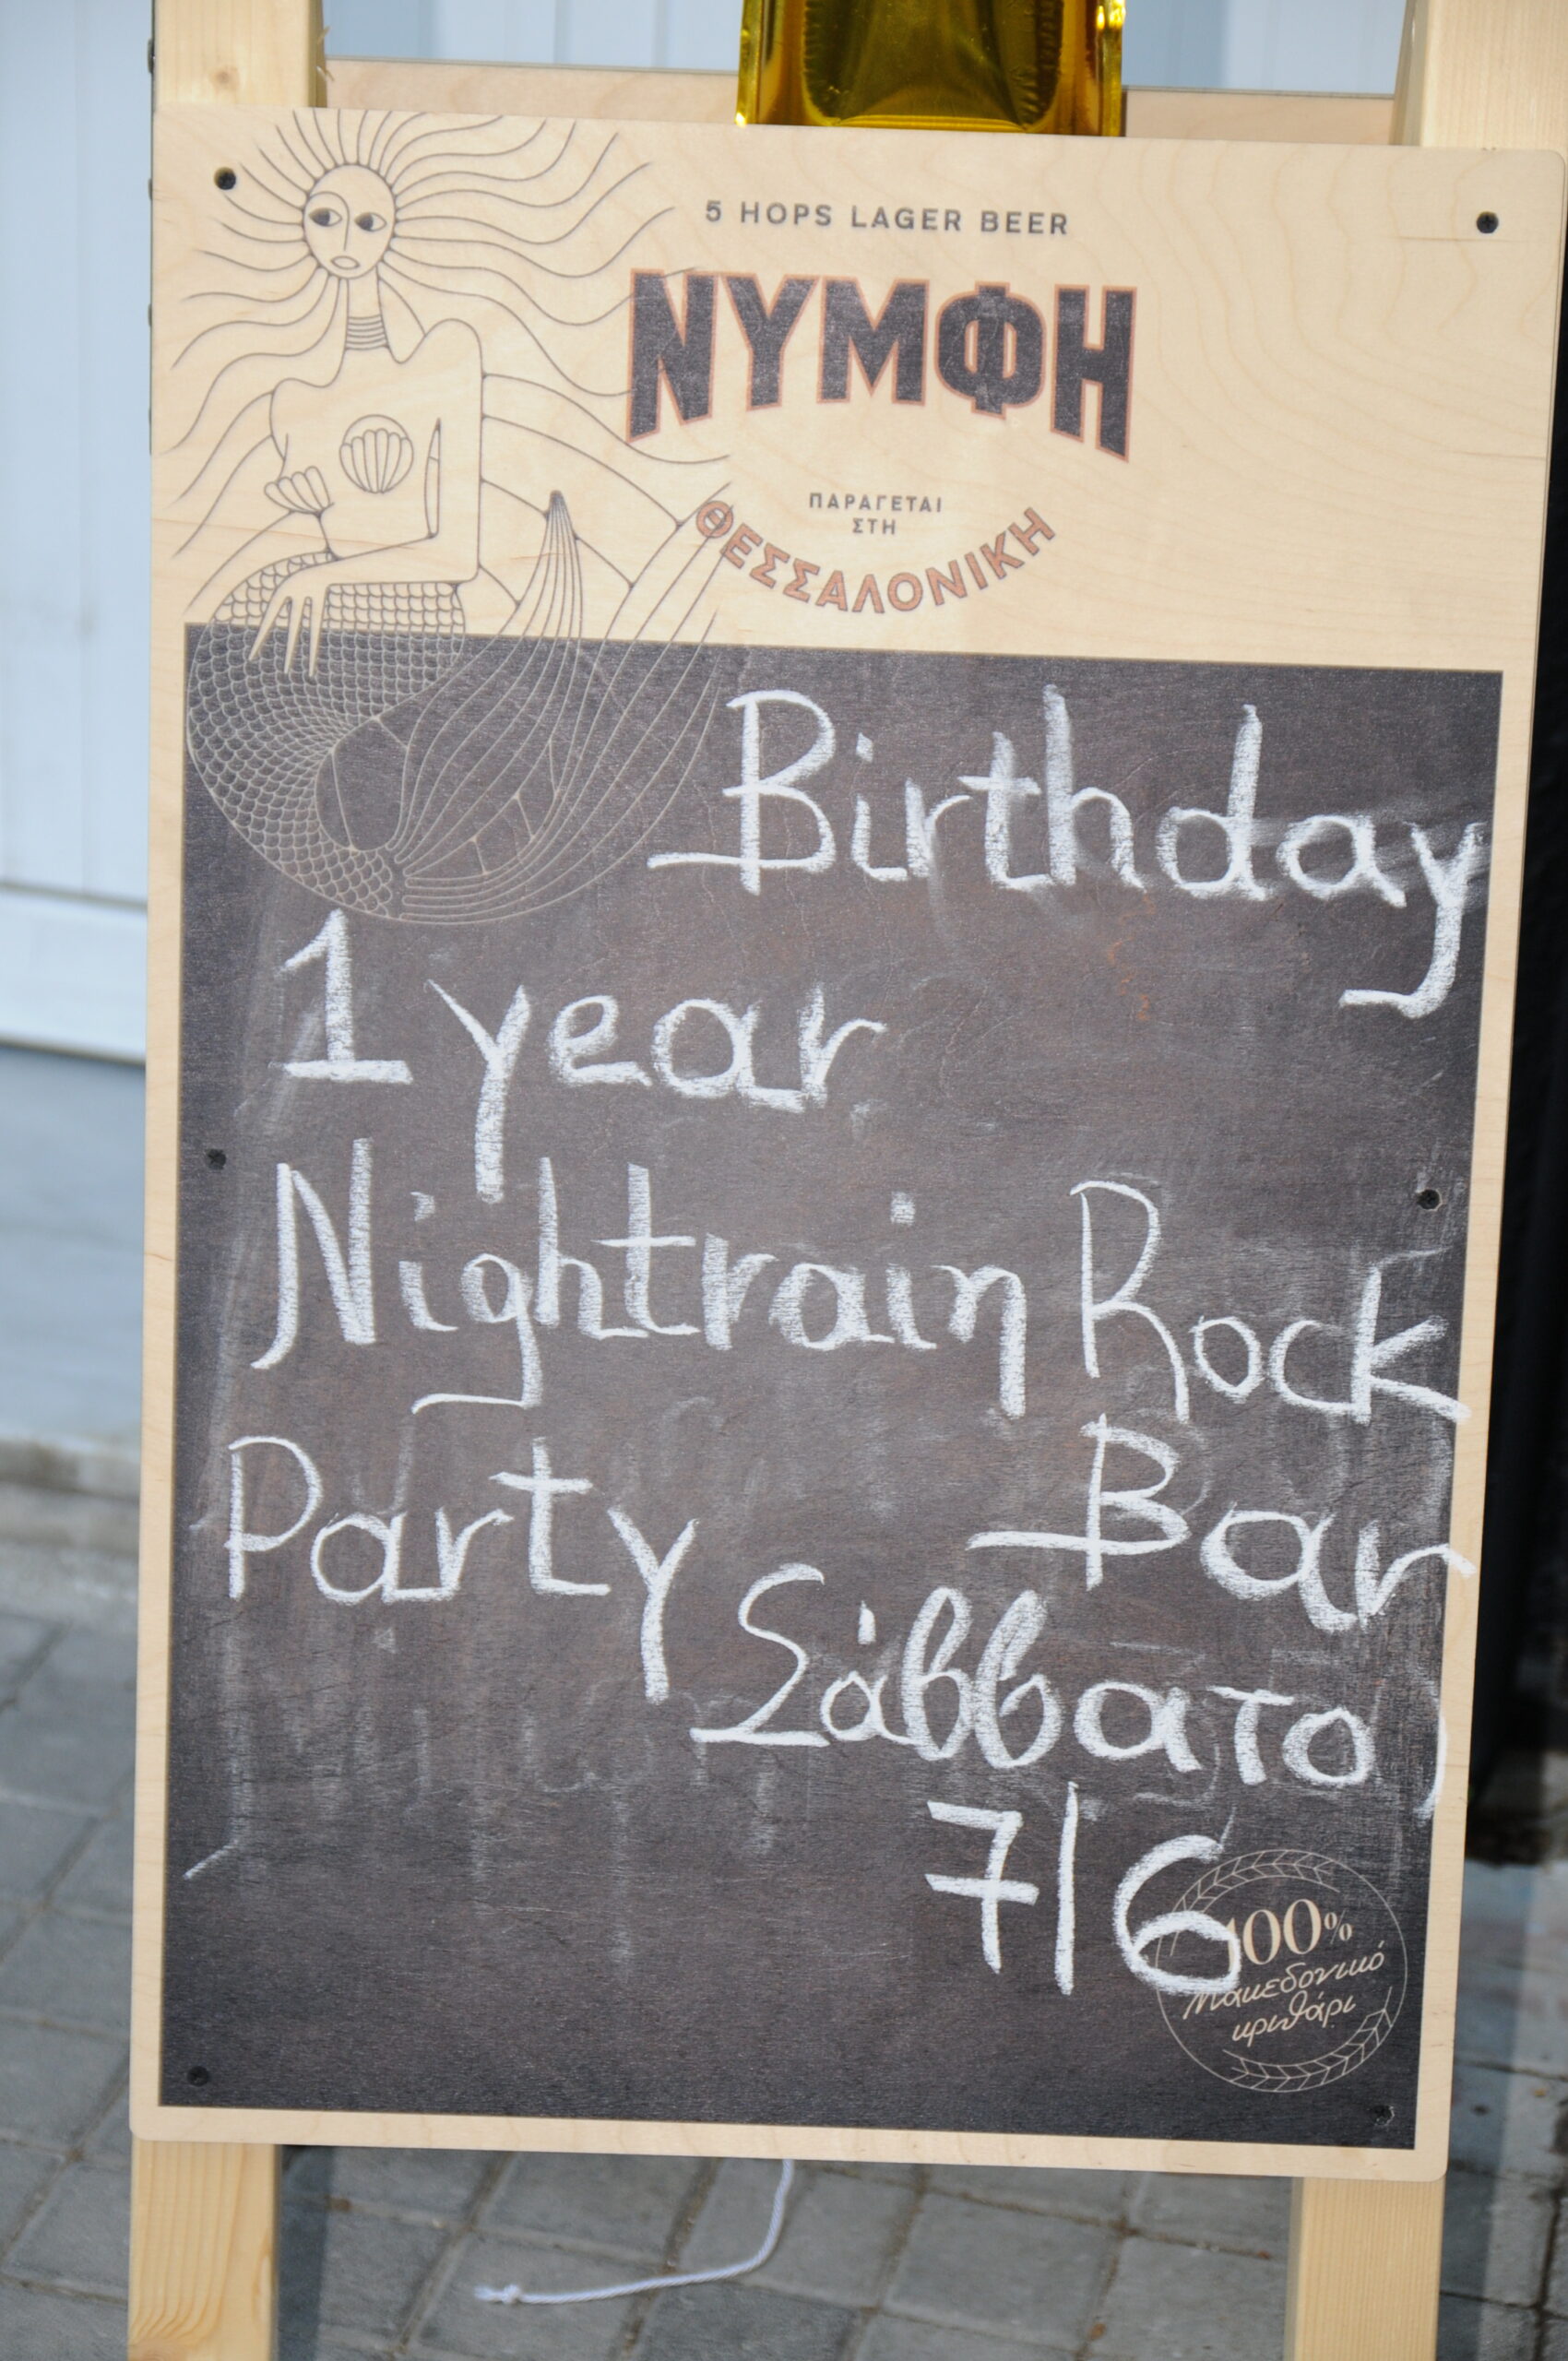 5 HOPS LAGER BEER
ΝΥΜΦΗ
ΠΑΡΑΓΕΤΑΙ
ΣΤΗ
ΘΕΣΣΑΛΟΝΙΚΗ
Birthday
1 year
Nightrain Rock
Party Bar
Σάββατο,
7/6
100%
Μακεδονικό
κριθάρι